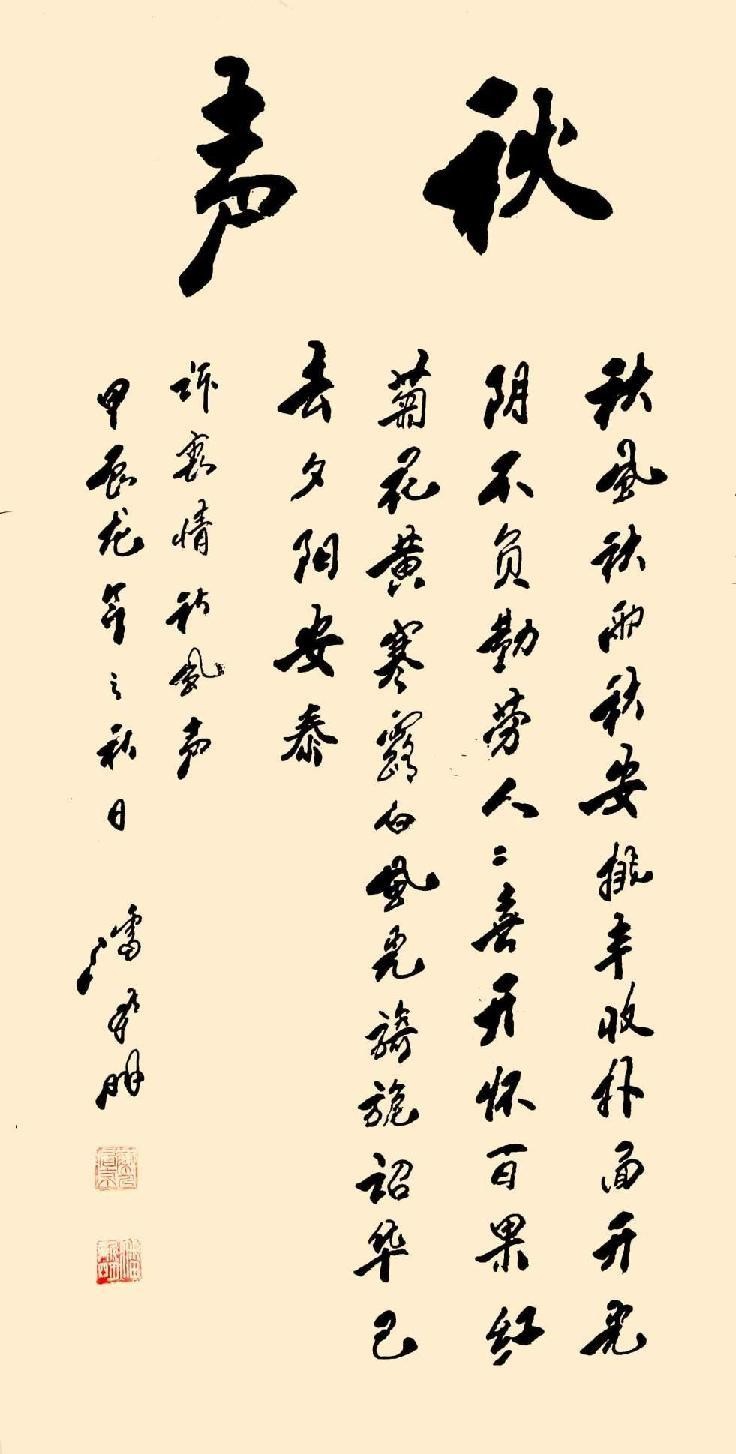 秋声
秋风秋雨秋安排丰收扑面开光
阴不负勤劳人二喜开怀百果红
菊花黄寒露白风光旖旎韶华已
去夕阳安泰
诉衷情秋风声
甲辰龙年之秋日
潘 明